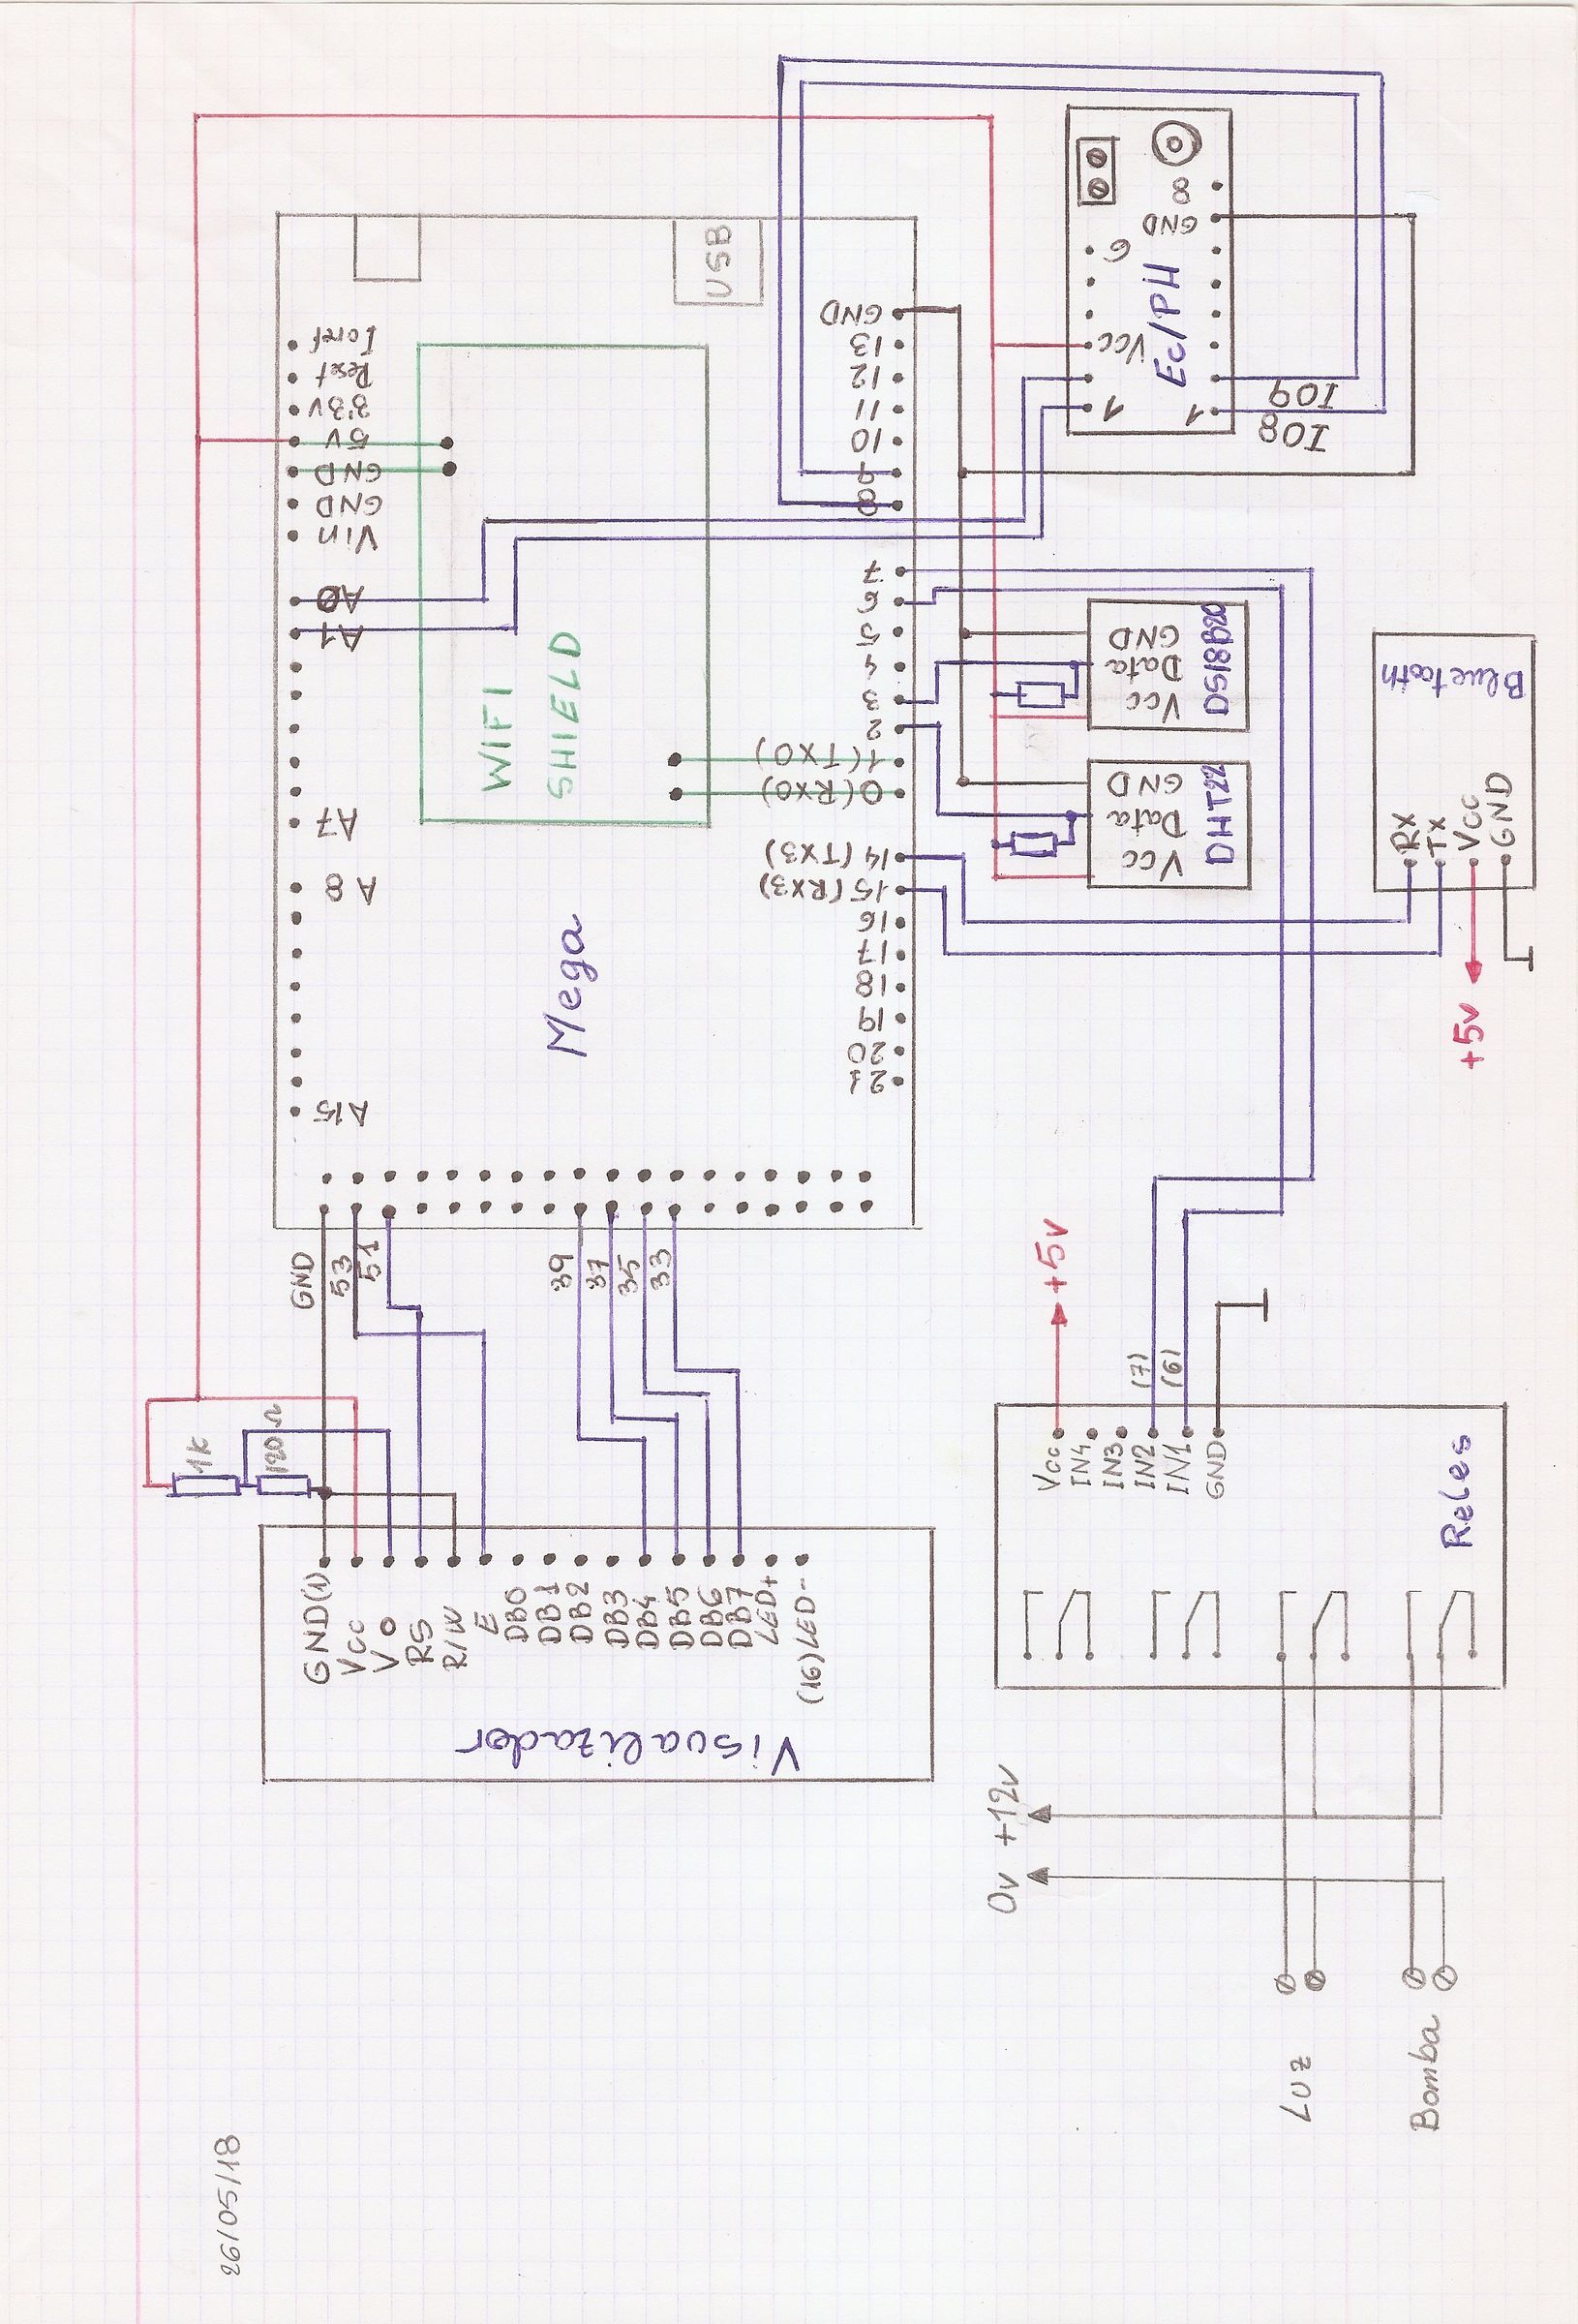 Ioref
Reset
3'3v
5v
GND
GND
Vin
A0
A1
A7
A8
A15
WIFI
SHIELD
Mega
USB
GND
13
12
11
10
9
8
7
6
5
4
3
2
1(TX0)
0(RX0)
14(TX3)
15(RX3)
16
17
18
19
20
21
8
GND
6
Vcc
1
1
Ec/PH
IO9
IO8
GND
Data
Vcc
DS18B20
GND
Data
Vcc
DHT22
Bluetooth
RX
TX
Vcc
GND
+5v
GND
53
51
39
37
35
33
1K
120Ω
GND(1)
Vcc
Vo
RS
R/W
E
DB0
DB1
DB2
DB3
DB4
DB5
DB6
DB7
LED+
(16)LED-
Visualizador
+5v
(7)
(6)
Vcc
IN4
IN3
IN2
IN1
GND
Reles
+12v
0v
Luz
Bomba
26/05/18